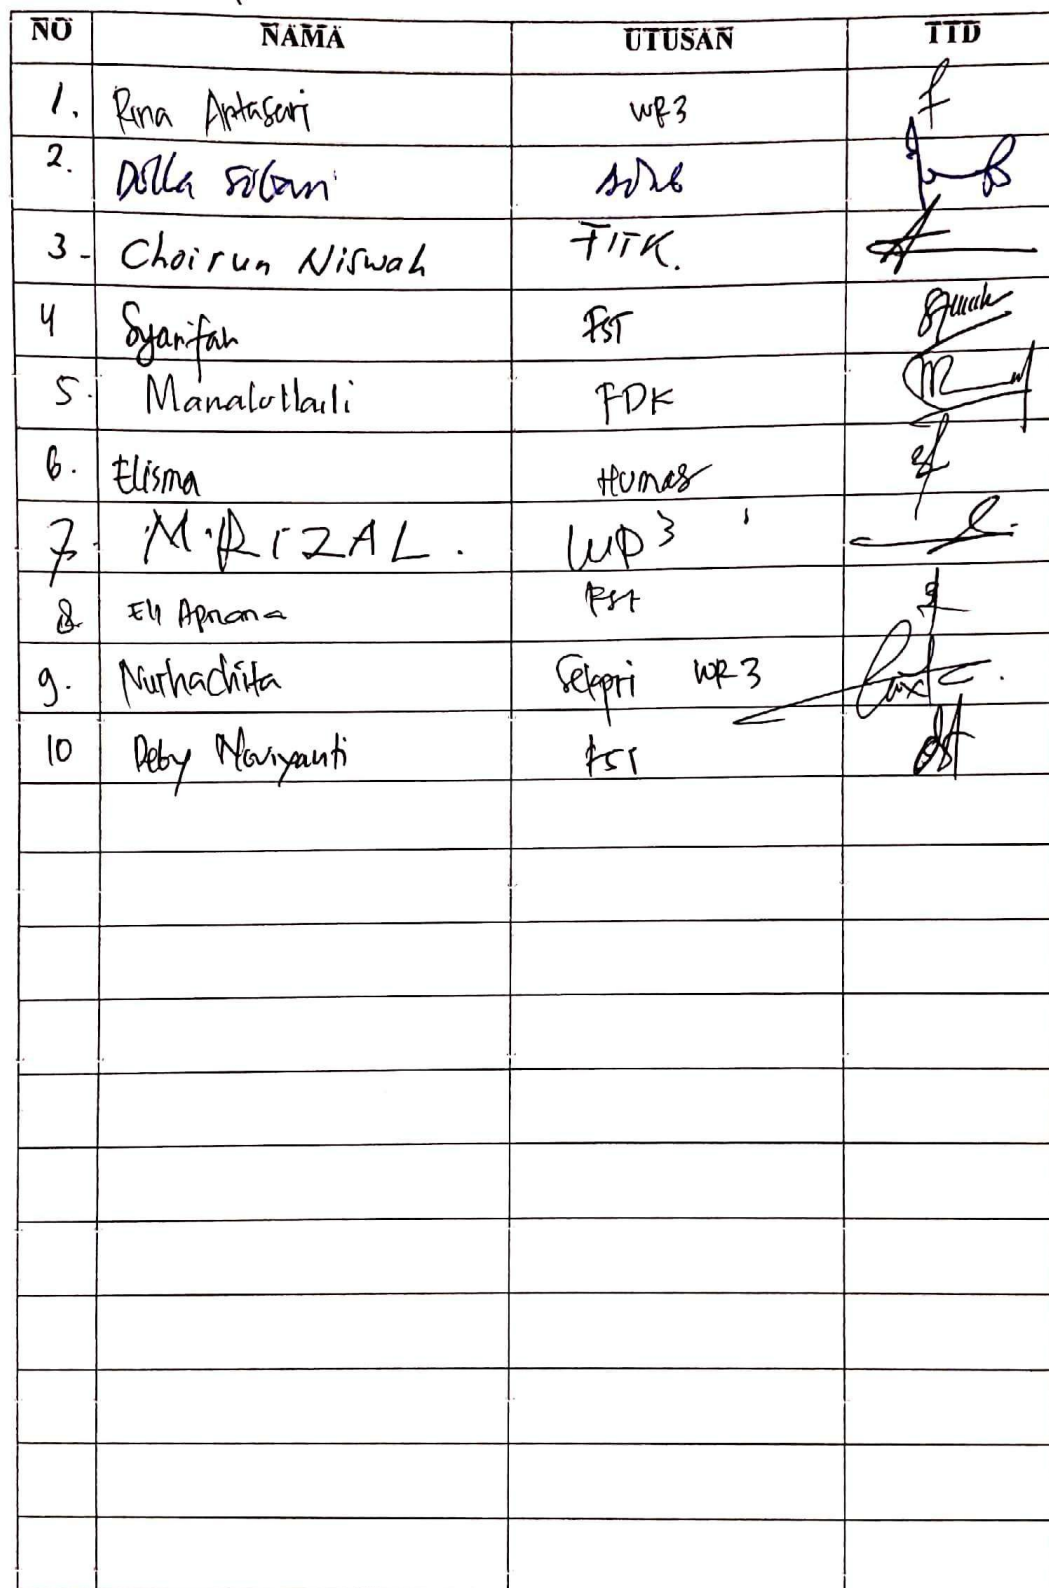 NO NAMA UTUSAN TTD
1. Rina Antasari WR3
2. Dolla
3- Choirun Niswah FITK.
4 Syarifah FST
5. Manalullaili FDK
6. Elisma Humas
7. M. RIZAL. WR3
8 Eli Apriana FST
9. Nurhachita Sekpri WR3
10 Deby Noviyanti FST